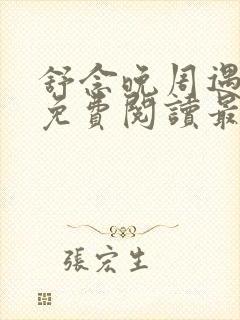 舒念晚周遇
免費閱讀最
張宏生